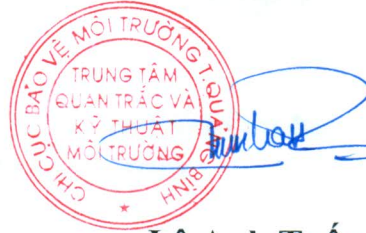 CHI CỤC BẢO VỆ MÔI TRƯỜNG T.QUẢNG BÌNH
TRUNG TÂM
QUAN TRẮC VÀ
KỸ THUẬT
MÔI TRƯỜNG